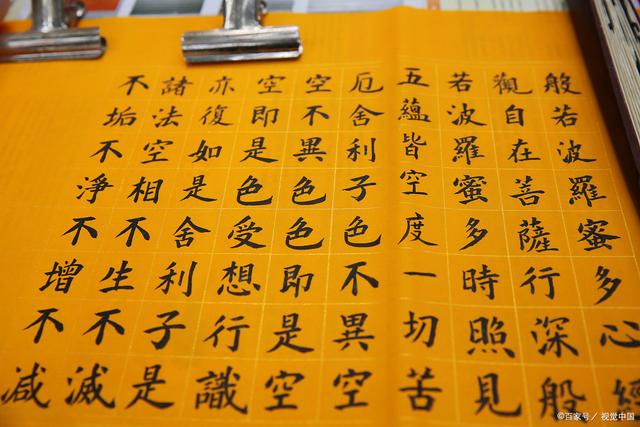 般若波羅蜜多心經
觀自在菩薩行深般
若波羅蜜多時照見
五蘊皆空度一切苦
厄舍利子色不異空
空不異色色即是空
空即是色受想行識
亦復如是舍利子是
諸法空相不生不滅
不垢不淨不增不减
©百家号／视觉中国